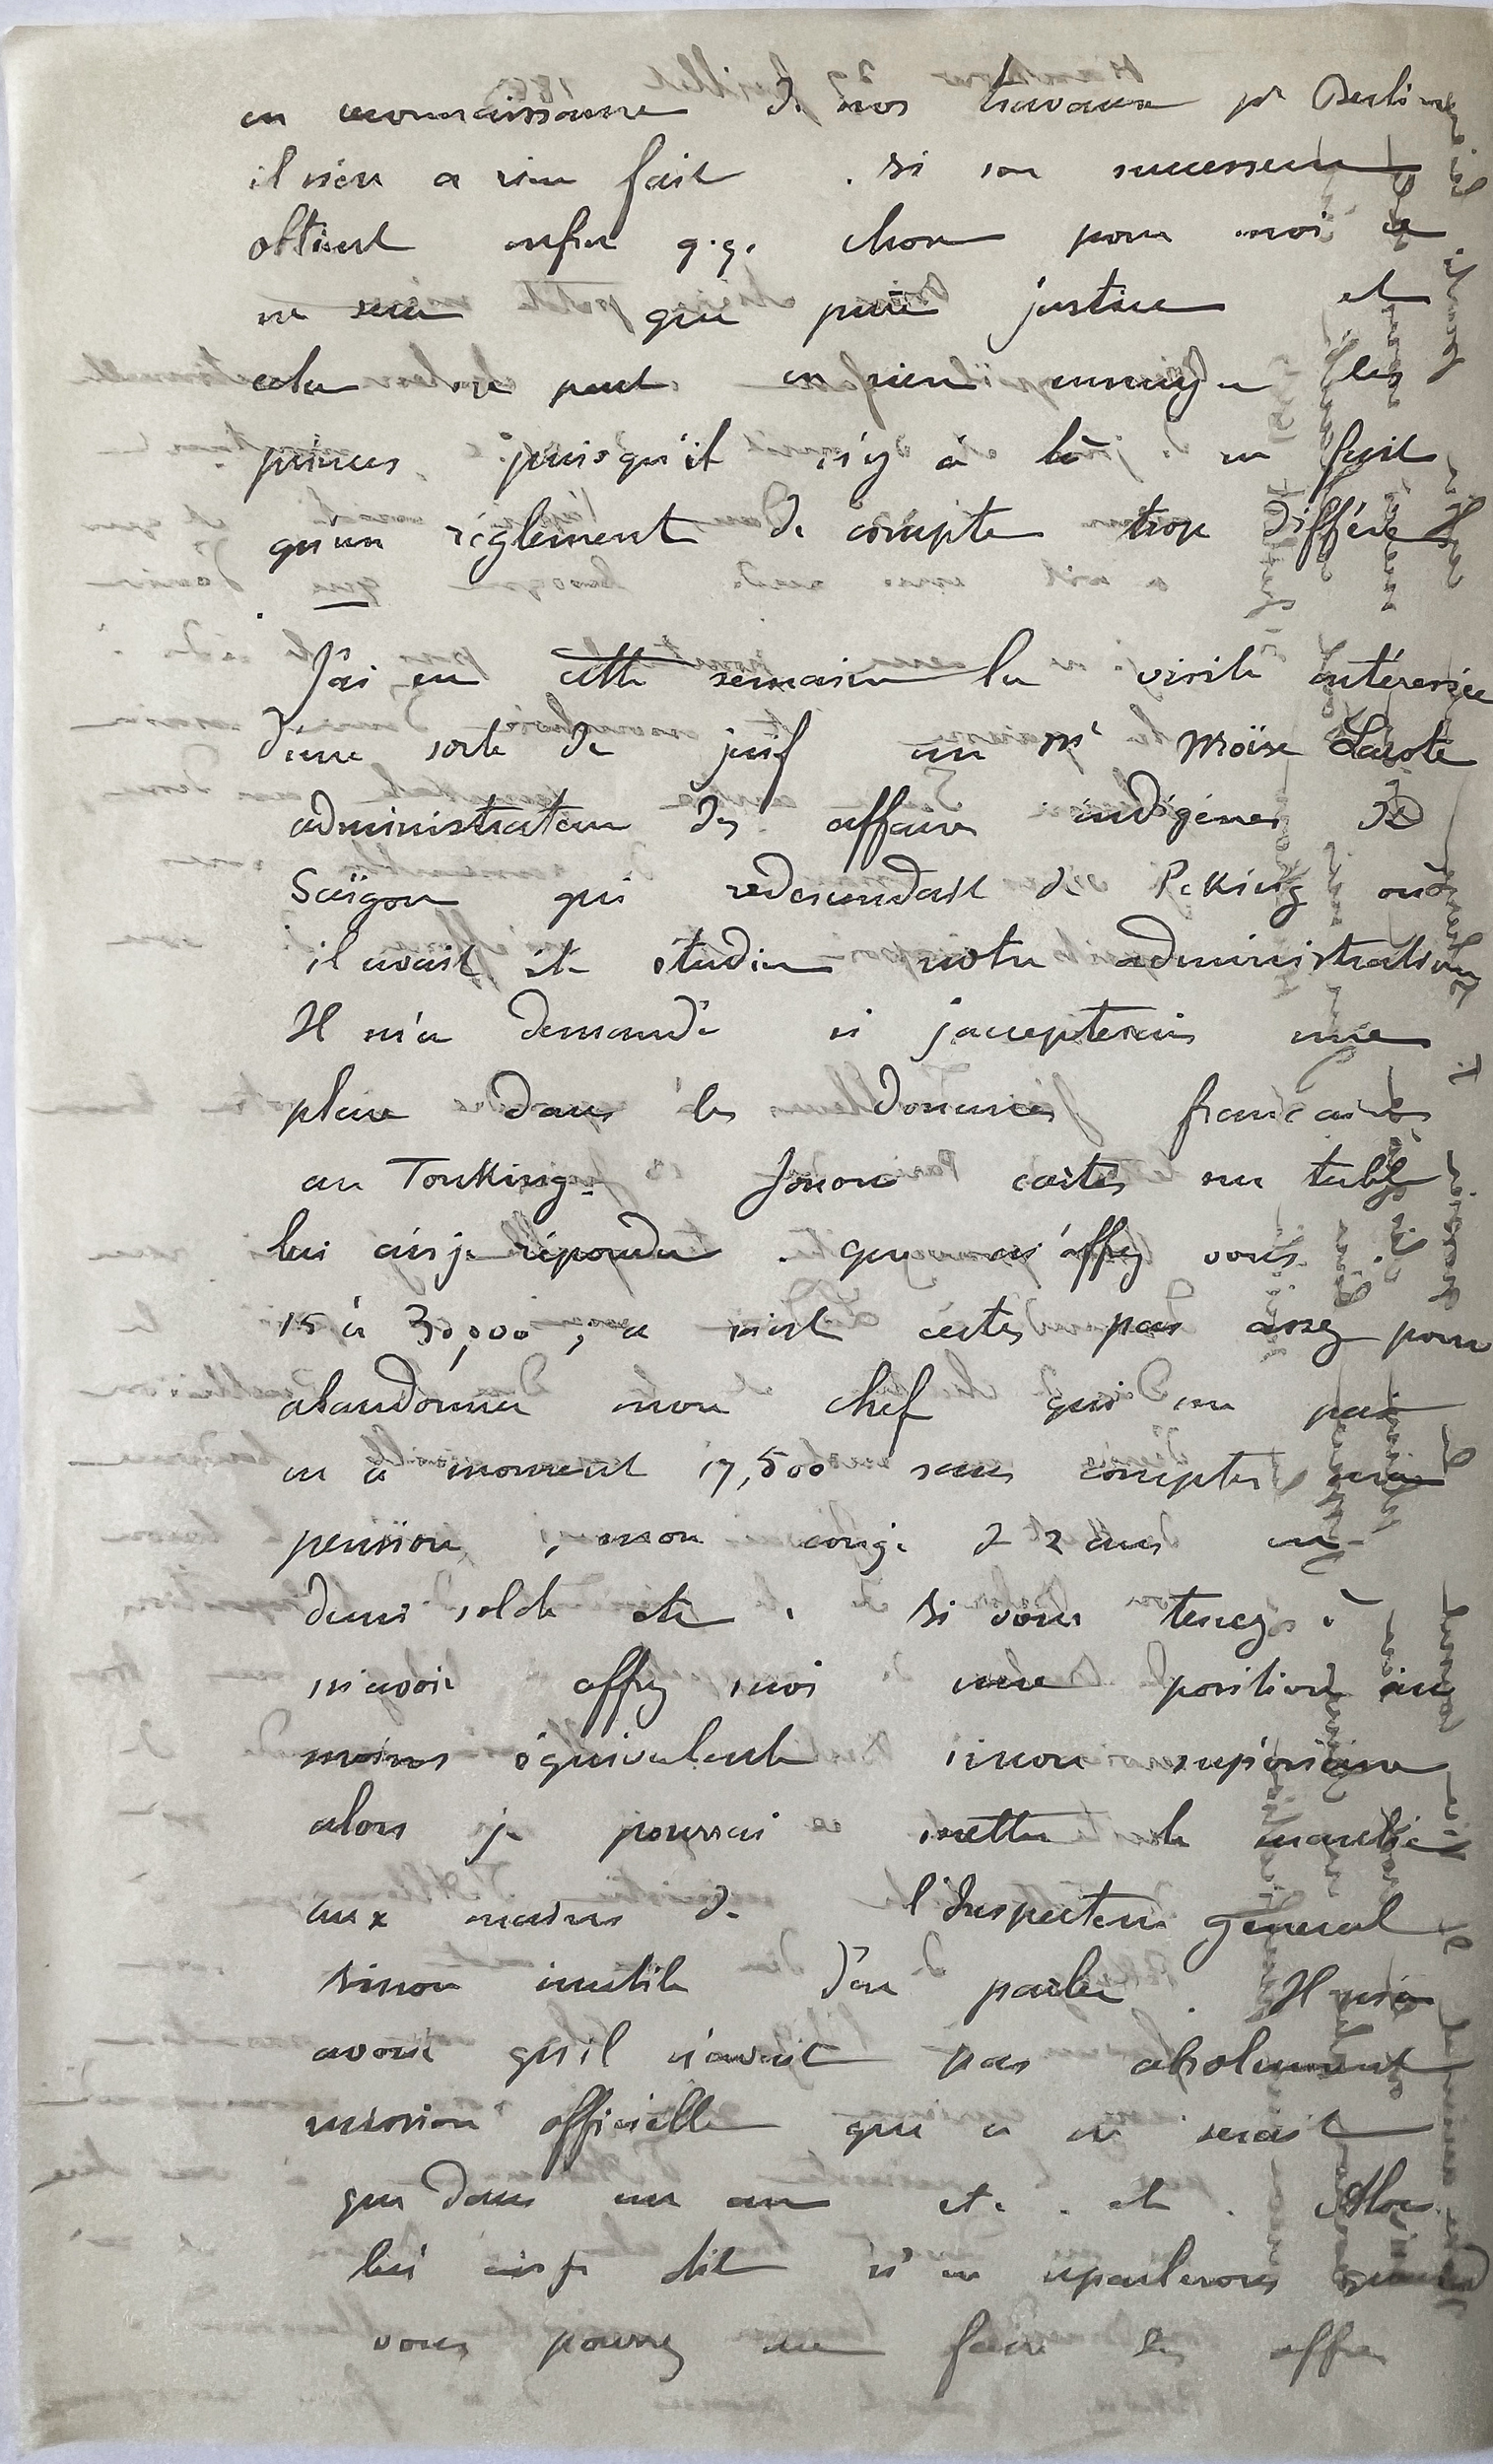 en reconnaissance de nos travaux pr Berlin
il n'en a rien fait . Si son successeur
obtient enfin q.q. chose pour moi ce
ne sera que pure justice et
cela ne peut en rien ennuyer les
princes puisqu'il n'y a là en fait
qu'un règlement de compte trop différé
J'ai eu cette semaine la visite intéressée
d'une sorte de juif un Mr Moïse
administrateur des affaires indigènes de
Saïgon qui redescendait de Peking où
il avait été étudier notre administration
Il m'a demandé si j'accepterais une
place dans les douanes françaises
au Tonking. Jouons cartes sur table
lui ai-je répondu . que m'offrez vous .
15 à 30,000 ; ce n'est certes pas assez pour
abandonner mon chef qui me paie
en ce moment 17,500 sans compter ma
pension , mon congé de 2 ans en
demi solde etc . Si vous tenez à
m'avoir offrez moi une position au
moins équivalente sinon supérieure
alors je pourrai mettre le marché
aux mains de l'Inspecteur général
sinon inutile d'en parler . Il m'a
avoué qu'il n'avait pas absolument
mission officielle que ce ne serait
que dans un an etc . etc . Alors
lui ai-je dit n'en reparlerons quand
vous pourrez me faire des offres